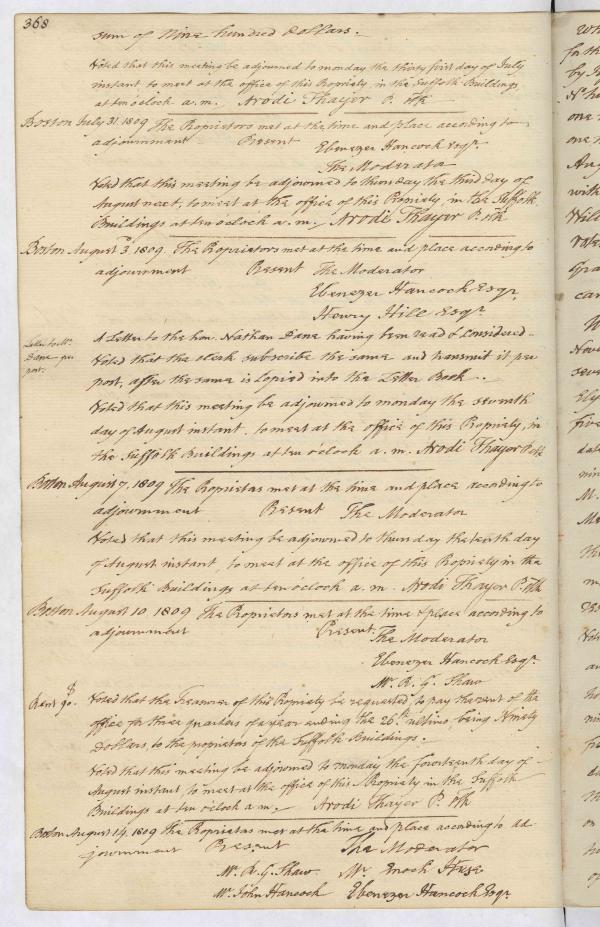 368
sum of Nine hundred Dollars.
Voted that this meeting be adjourned to monday the thirty first day of July
instant to meet at the office of this Propriety, in the Suffolk Buildings
at ten o'clock a.m. Arodi Thayer P. Clk
Boston July 31. 1809 The Proprietors met at the time and place according to
adjournment Present Ebenezer Hancock Esqr.
The Moderator
Voted that this meeting be adjourned to thursday the third day of
August next, to meet at the office of this Propriety, in the Suffolk
Buildings at ten o'clock a.m. Arodi Thayer P. Clk
Boston August 3. 1809. The Proprietors met at the time and place according to
adjournment Present The Moderator
Ebenezer Hancock Esqr.
Henry Hill Esqr.
Letter to Mr.
Dane per
post.
A Letter to the hon. Nathan Dane having been read & considered -
Voted that the clerk subscribe the same and transmit it per
post, after the same is copied into the Letter Book.
Voted that this meeting be adjourned to monday the seventh
day of August instant, to meet at the office of this Propriety, in
the Suffolk Buildings at ten o'clock a.m. Arodi Thayer P. Clk
Boston August 7. 1809 The Proprietors met at the time and place according to
adjournment Present The Moderator
Voted that this meeting be adjourned to thursday the tenth day
of August instant, to meet at the office of this Propriety in the
Suffolk Buildings at ten o'clock a.m. Arodi Thayer P. Clk
Boston August 10. 1809 The Proprietors met at the time & place according to
adjournment Present. The Moderator
Ebenezer Hancock Esqr.
Mr. R. G. Shaw
Rent 90.
Voted that the Treasurer of this Propriety be requested to pay the rent of the
office for three quarters of a year ending the 26th. ultimo, being Ninety
Dollars, to the proprietors of the Suffolk Buildings.
Voted that this meeting be adjourned to monday the fourteenth day of
August instant, to meet at the office of this Propriety in the Suffolk
Buildings at ten o'clock a.m. Arodi Thayer P. Clk
Boston August 14. 1809 The Proprietors met at the time and place according to ad
journment Present The Moderator
Mr. R. G. Shaw Mr. Enoch
Mr. John Hancock Ebenezer Hancock Esqr.